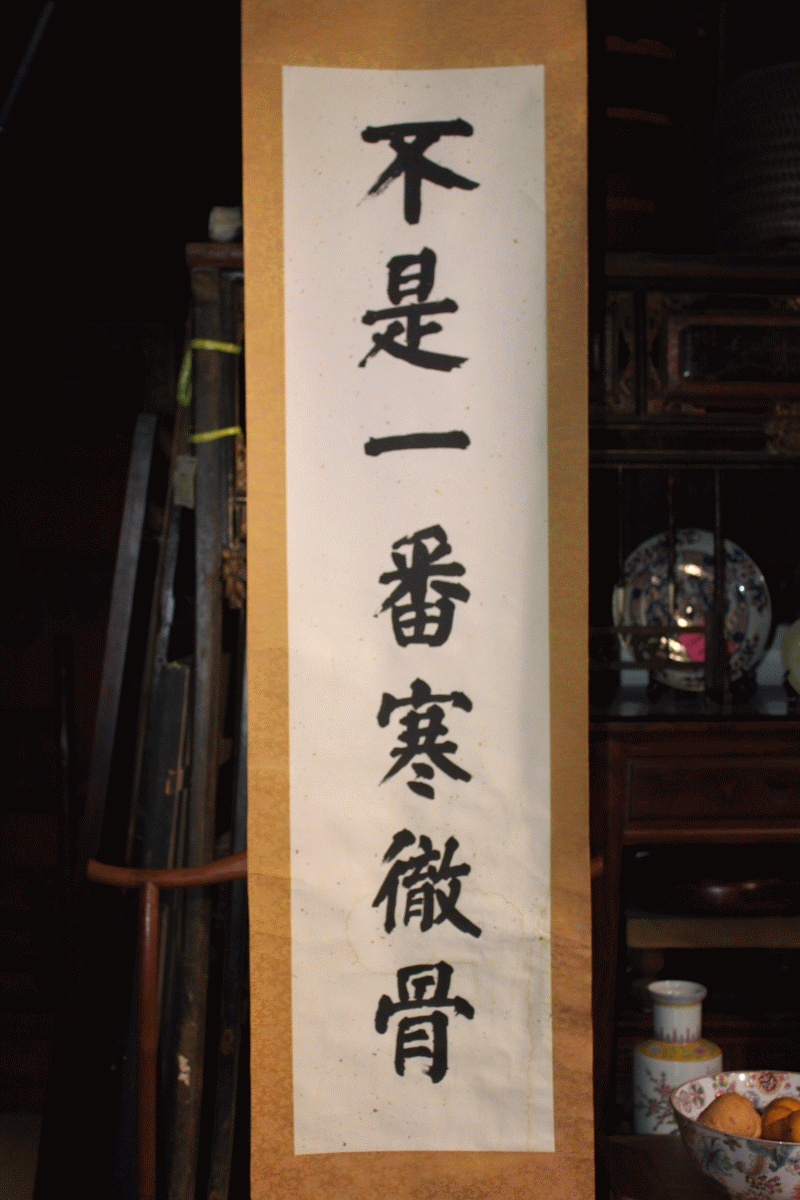 不是一番寒徹骨